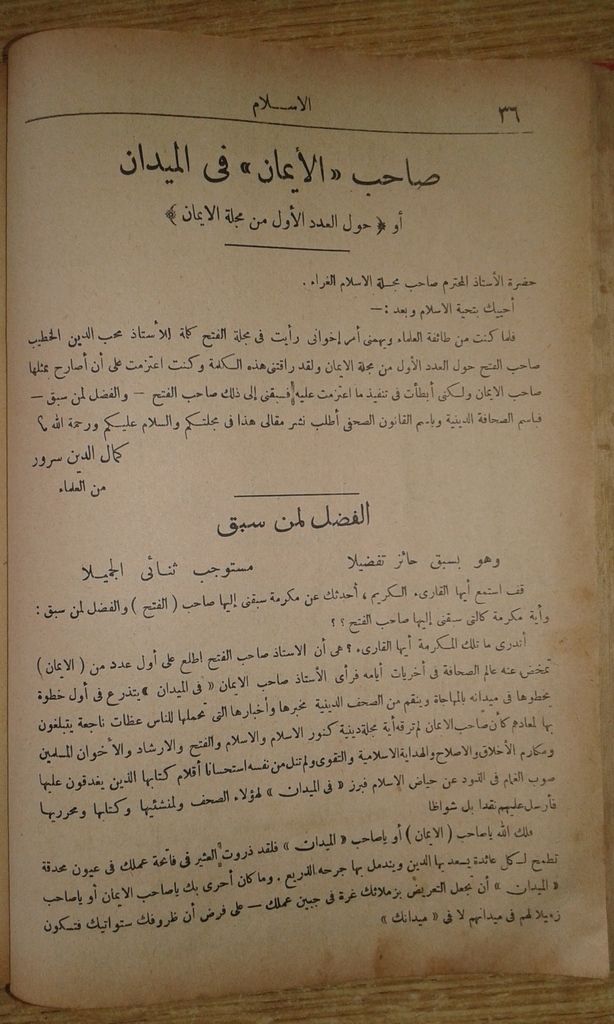 ٣٦
الاســلام
صاحب «الأيمان» فى الميدان
أو ﴿ حول العدد الأول من مجلة الايمان ﴾
حضرة الأستاذ المحترم صاحب مجــلة الاسلام الغراء .
أحييك بتحية الاسلام وبعد :—
فلما كنت من طائفة العلماء ويهمنى أمر إخوانى رأيت فى مجلة الفتح كلمة للأستاذ محب الدين الخطيب
صاحب الفتح حول العدد الأول من مجلة الايمان ولقد راقتنى هذه الكلمة وكنت اعتزمت على أن أصارح بمثلها
صاحب الايمان ولكنى أبطأت فى تنفيذ ما اعتزمت عليه فسبقنى إلى ذلك صاحب الفتح — والفضل لمن سبق —
فباسم الصحافة الدينية وباسم القانون الصحفى أطلب نشر مقالى هذا فى مجلتكم والسلام عليكم ورحمة الله
كمال الدين سرور
من العلماء
الفضل لمن سبق
وهو بسبق حائز تفضيلا مستوجب ثنائى الجميلا
قف استمع أيها القارىء الكريم ، أحدثك عن مكرمة سبقنى إليها صاحب ( الفتح ) والفضل لمن سبق :
وأية مكرمة كالتى سبقنى إليها صاحب الفتح ؟ ؟
أتدرى ما تلك المكرمة أيها القارىء ؟ هى أن الاستاذ صاحب الفتح اطلع على أول عدد من ( الايمان )
تمخض عنه عالم الصحافة فى أخريات أيامه فرأى الأستاذ صاحب الايمان « فى الميدان » يتذرع فى أول خطوة
يخطوها فى ميدانه بالمهاجاة وينقم من الصحف الدينية مخبرها وأخبارها التى تحملها للناس عظات ناجعة يتبلغون
بها لمعادهم كأن صاحب الايمان لم ترقه أية مجلة دينية كنور الاسلام والاسلام والفتح والارشاد والأخوان المسلمين
ومكارم الأخلاق والاصلاح والهداية الاسلامية والتقوى ولم تنل من نفسه استحسانا أقلام كتابها الذين يغدقون عليها
صوب الغمام فى الذود عن حياض الاسلام فبرز « فى الميدان » لهؤلاء الصحف ولمنشئيها وكتابها ومحرريها
فأرسل عليهم نقدا بل شواظا
فلك الله ياصاحب ( الايمان ) أو ياصاحب « الميدان » فلقد ذروت العثير فى فاتحة عملك فى عيون محدقة
تطمح لكل عائدة يسعد بها الدين ويندمل بها جرحه الذريع . وما كان أحرى بك ياصاحب الايمان أو ياصاحب
« الميدان » أن تجعل التعريض بزملائك غرة فى جبين عملك — على فرض أن ظروفك ستواتيك فتكون
زميلا لهم فى ميدانهم لا فى « ميدانك »